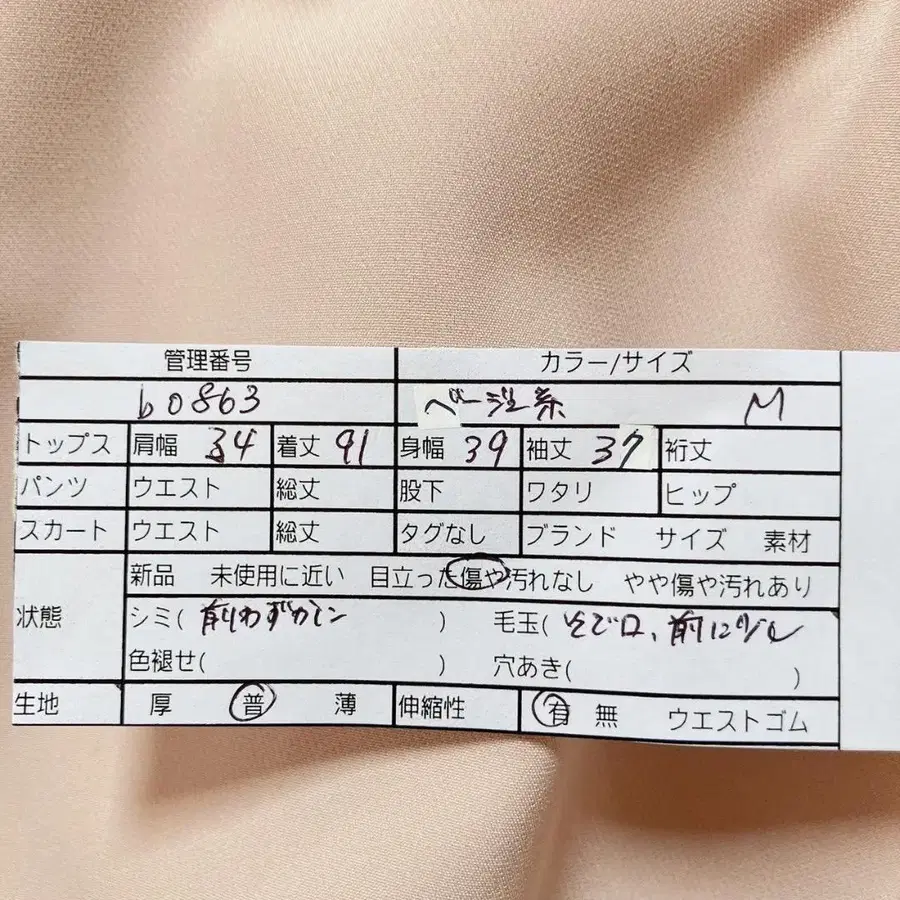 管理番号 カラー/サイズ
b0863 ベージュ系 M
トップス 肩幅 34 着丈 91 身幅 39 袖丈 37 裄丈
パンツ ウエスト 総丈 股下 ワタリ ヒップ
スカート ウエスト 総丈 タグなし ブランド サイズ 素材
状態 新品 未使用に近い 目立った傷や汚れなし やや傷や汚れあり
シミ( 前わずか ) 毛玉( そで口、前に少し
色褪せ( ) 穴あき( )
生地 厚 普 薄 伸縮性 有 無 ウエストゴム